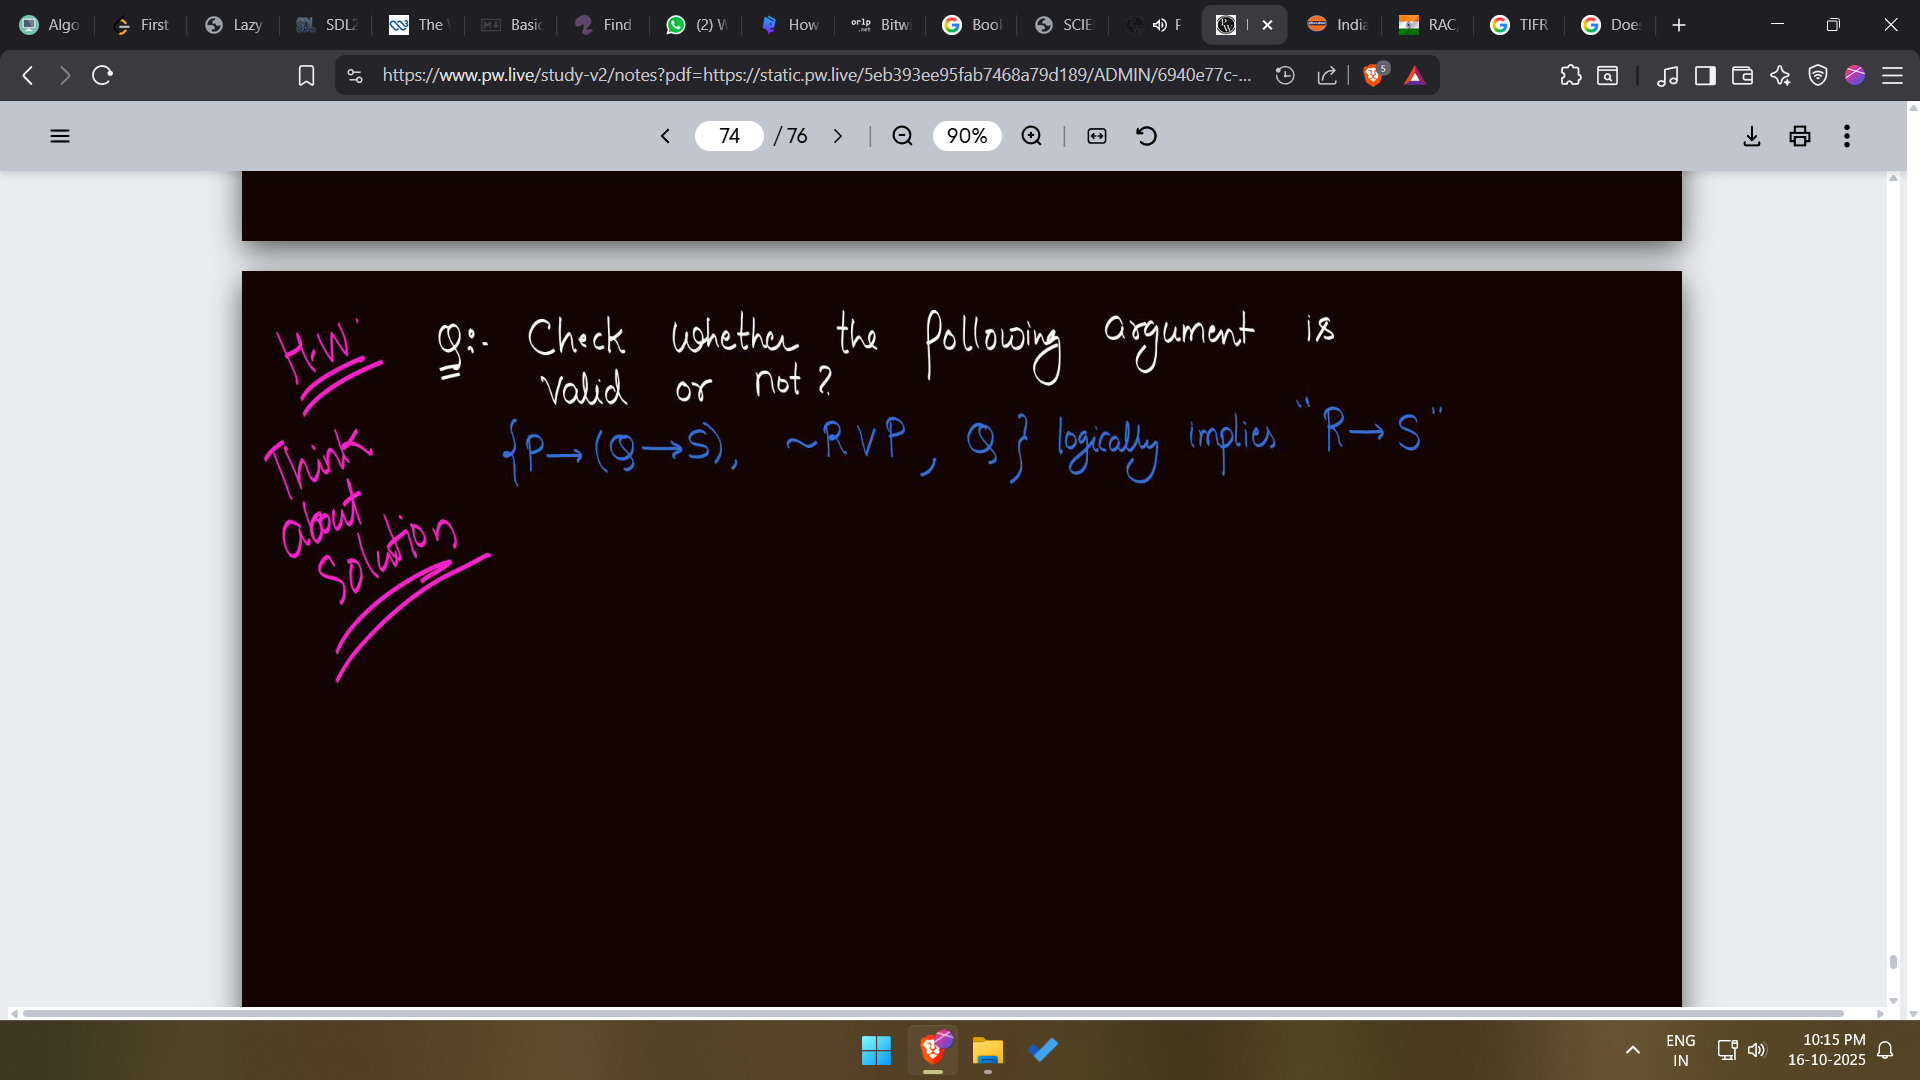 Algo First Lazy SDL2 The Basic Find (2) W How Bitwi Book SCIE India RAC, TIFR Does
https://www.pw.live/study-v2/notes?pdf=https://static.pw.live/5eb393ee95fab7468a79d189/ADMIN/6940e77c-... 5
74 / 76 90%
H.W.
Q:- Check whether the following argument is
valid or not?
{P→(Q→S), ~R∨P, Q} logically implies "R→S"
Think
about
Solution
ENG
IN
10:15 PM
16-10-2025